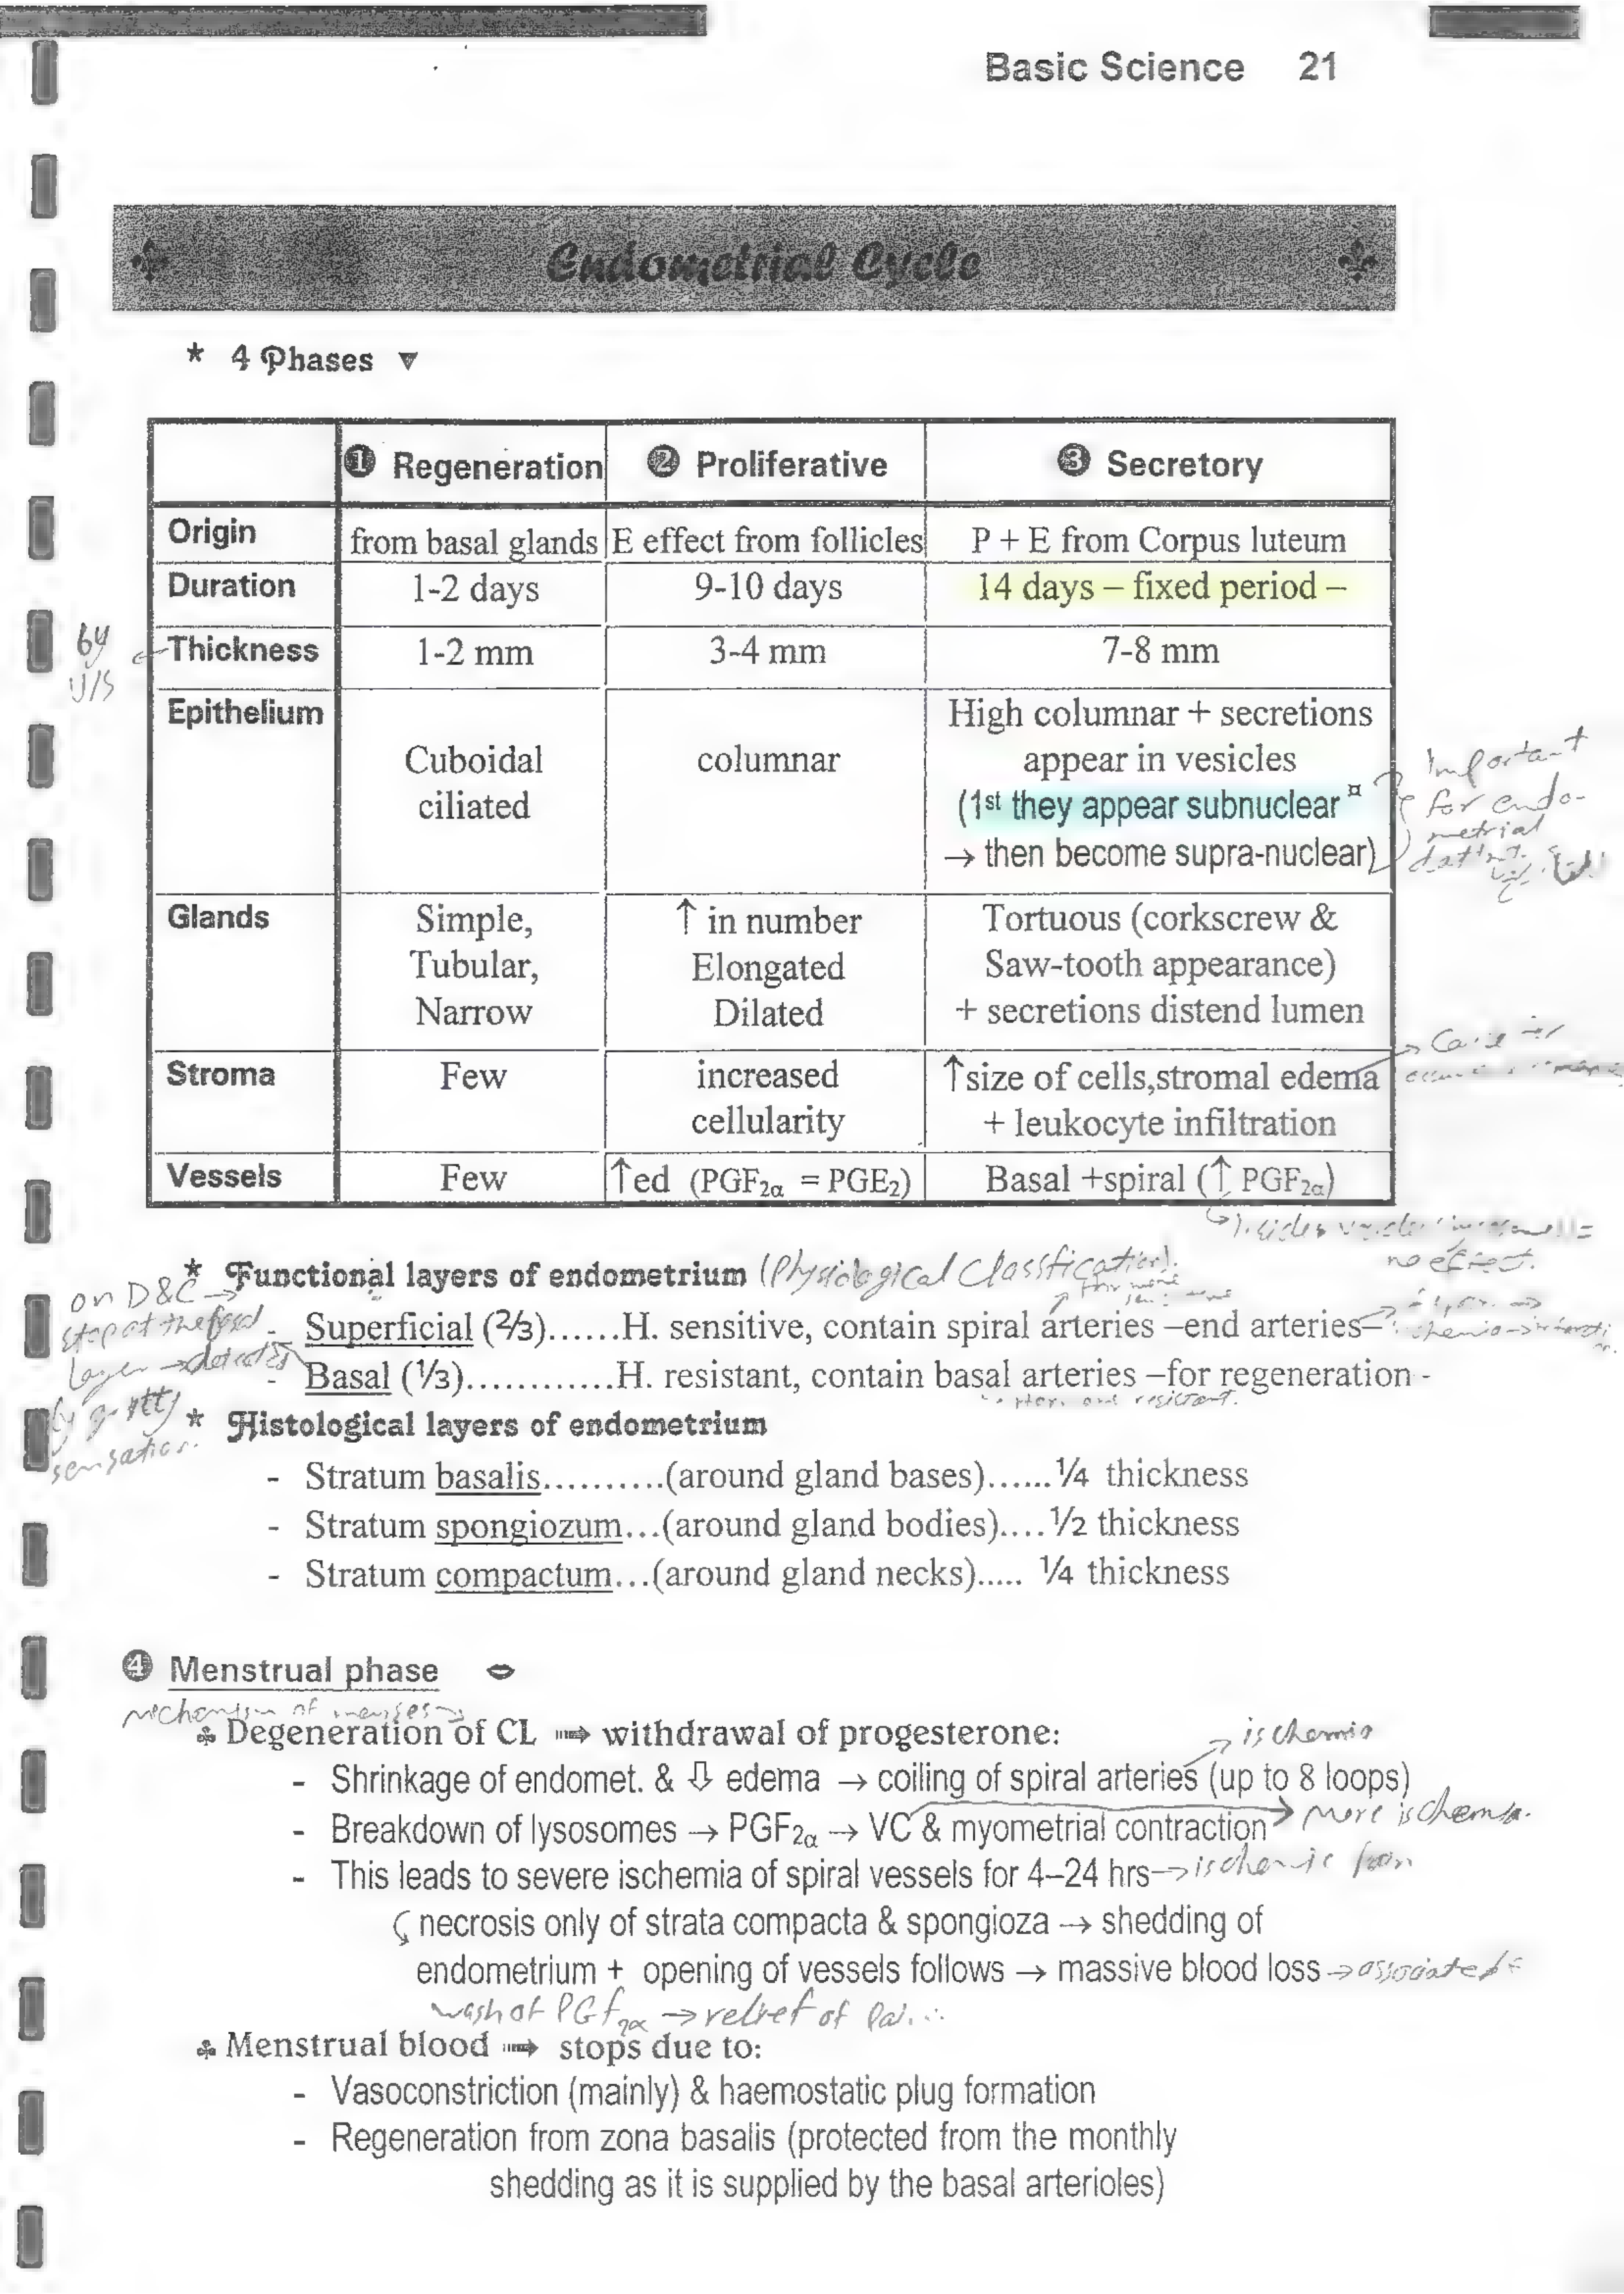 Basic Science 21
Endometrial Cycle
* 4 Phases ▼
❶ Regeneration ❷ Proliferative ❸ Secretory
Origin from basal glands E effect from follicles P + E from Corpus luteum
Duration 1-2 days 9-10 days 14 days – fixed period –
by U/S
Thickness 1-2 mm 3-4 mm 7-8 mm
Epithelium Cuboidal ciliated columnar High columnar + secretions
appear in vesicles
(1st they appear subnuclear ¤
→ then become supra-nuclear)
Important
for endo-
metrial
Glands Simple, ↑ in number Tortuous (corkscrew &
Tubular, Elongated Saw-tooth appearance)
Narrow Dilated + secretions distend lumen
Stroma Few increased ↑size of cells,stromal edema
cellularity + leukocyte infiltration
Vessels Few ↑ed (PGF2α = PGE2) Basal +spiral (↑ PGF2α)
no effect.
* Functional layers of endometrium (Physiological Classification).
on D&C →
stop at the basal
layer →
by gritty
sensation.
- Superficial (⅔)......H. sensitive, contain spiral arteries –end arteries–
- Basal (⅓)............H. resistant, contain basal arteries –for regeneration -
* Histological layers of endometrium
- Stratum basalis..........(around gland bases)......¼ thickness
- Stratum spongiozum...(around gland bodies)....½ thickness
- Stratum compactum...(around gland necks)..... ¼ thickness
❹ Menstrual phase
mechanism of menses
♣ Degeneration of CL ➟ withdrawal of progesterone:
→ ischemia
- Shrinkage of endomet. & ⇩ edema → coiling of spiral arteries (up to 8 loops)
- Breakdown of lysosomes → PGF2α → VC & myometrial contraction → more ischemia.
- This leads to severe ischemia of spiral vessels for 4–24 hrs → ischemic pain
necrosis only of strata compacta & spongioza → shedding of
endometrium + opening of vessels follows → massive blood loss → associated
wash of PGF2α → relief of pain
♣ Menstrual blood ➟ stops due to:
- Vasoconstriction (mainly) & haemostatic plug formation
- Regeneration from zona basalis (protected from the monthly
shedding as it is supplied by the basal arterioles)